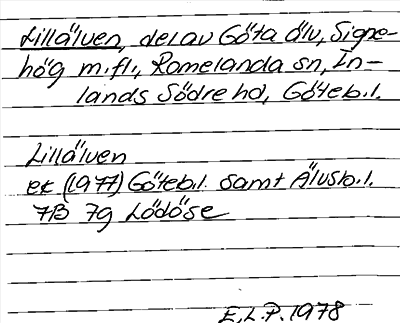 Lillälven, del av Göta älv, Signe-
hög m.fl., Romelanda sn, In-
lands Södre hd, Göteb.l.
Lillälven
ek (1977) Göteb.l. samt Älvsb.l.
7B 7g Lödöse
E.L.P. 1978